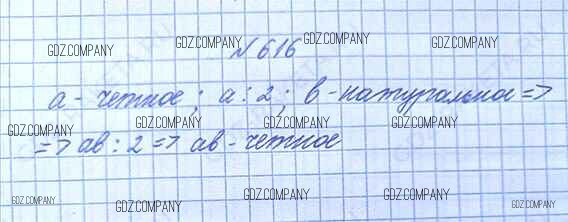 № 616
a - четное; a : 2; b - натуральное =>
=> ab : 2 => ab - четное
GDZ.COMPANY GDZ.COMPANY GDZ.COMPANY
GDZ.COMPANY GDZ.COMPANY GDZ.COMPANY
GDZ.COMPANY GDZ.COMPANY GDZ.COMPANY GDZ.COMPANY
GDZ.COMPANY GDZ.COMPANY GDZ.COMPANY GDZ.COMPANY